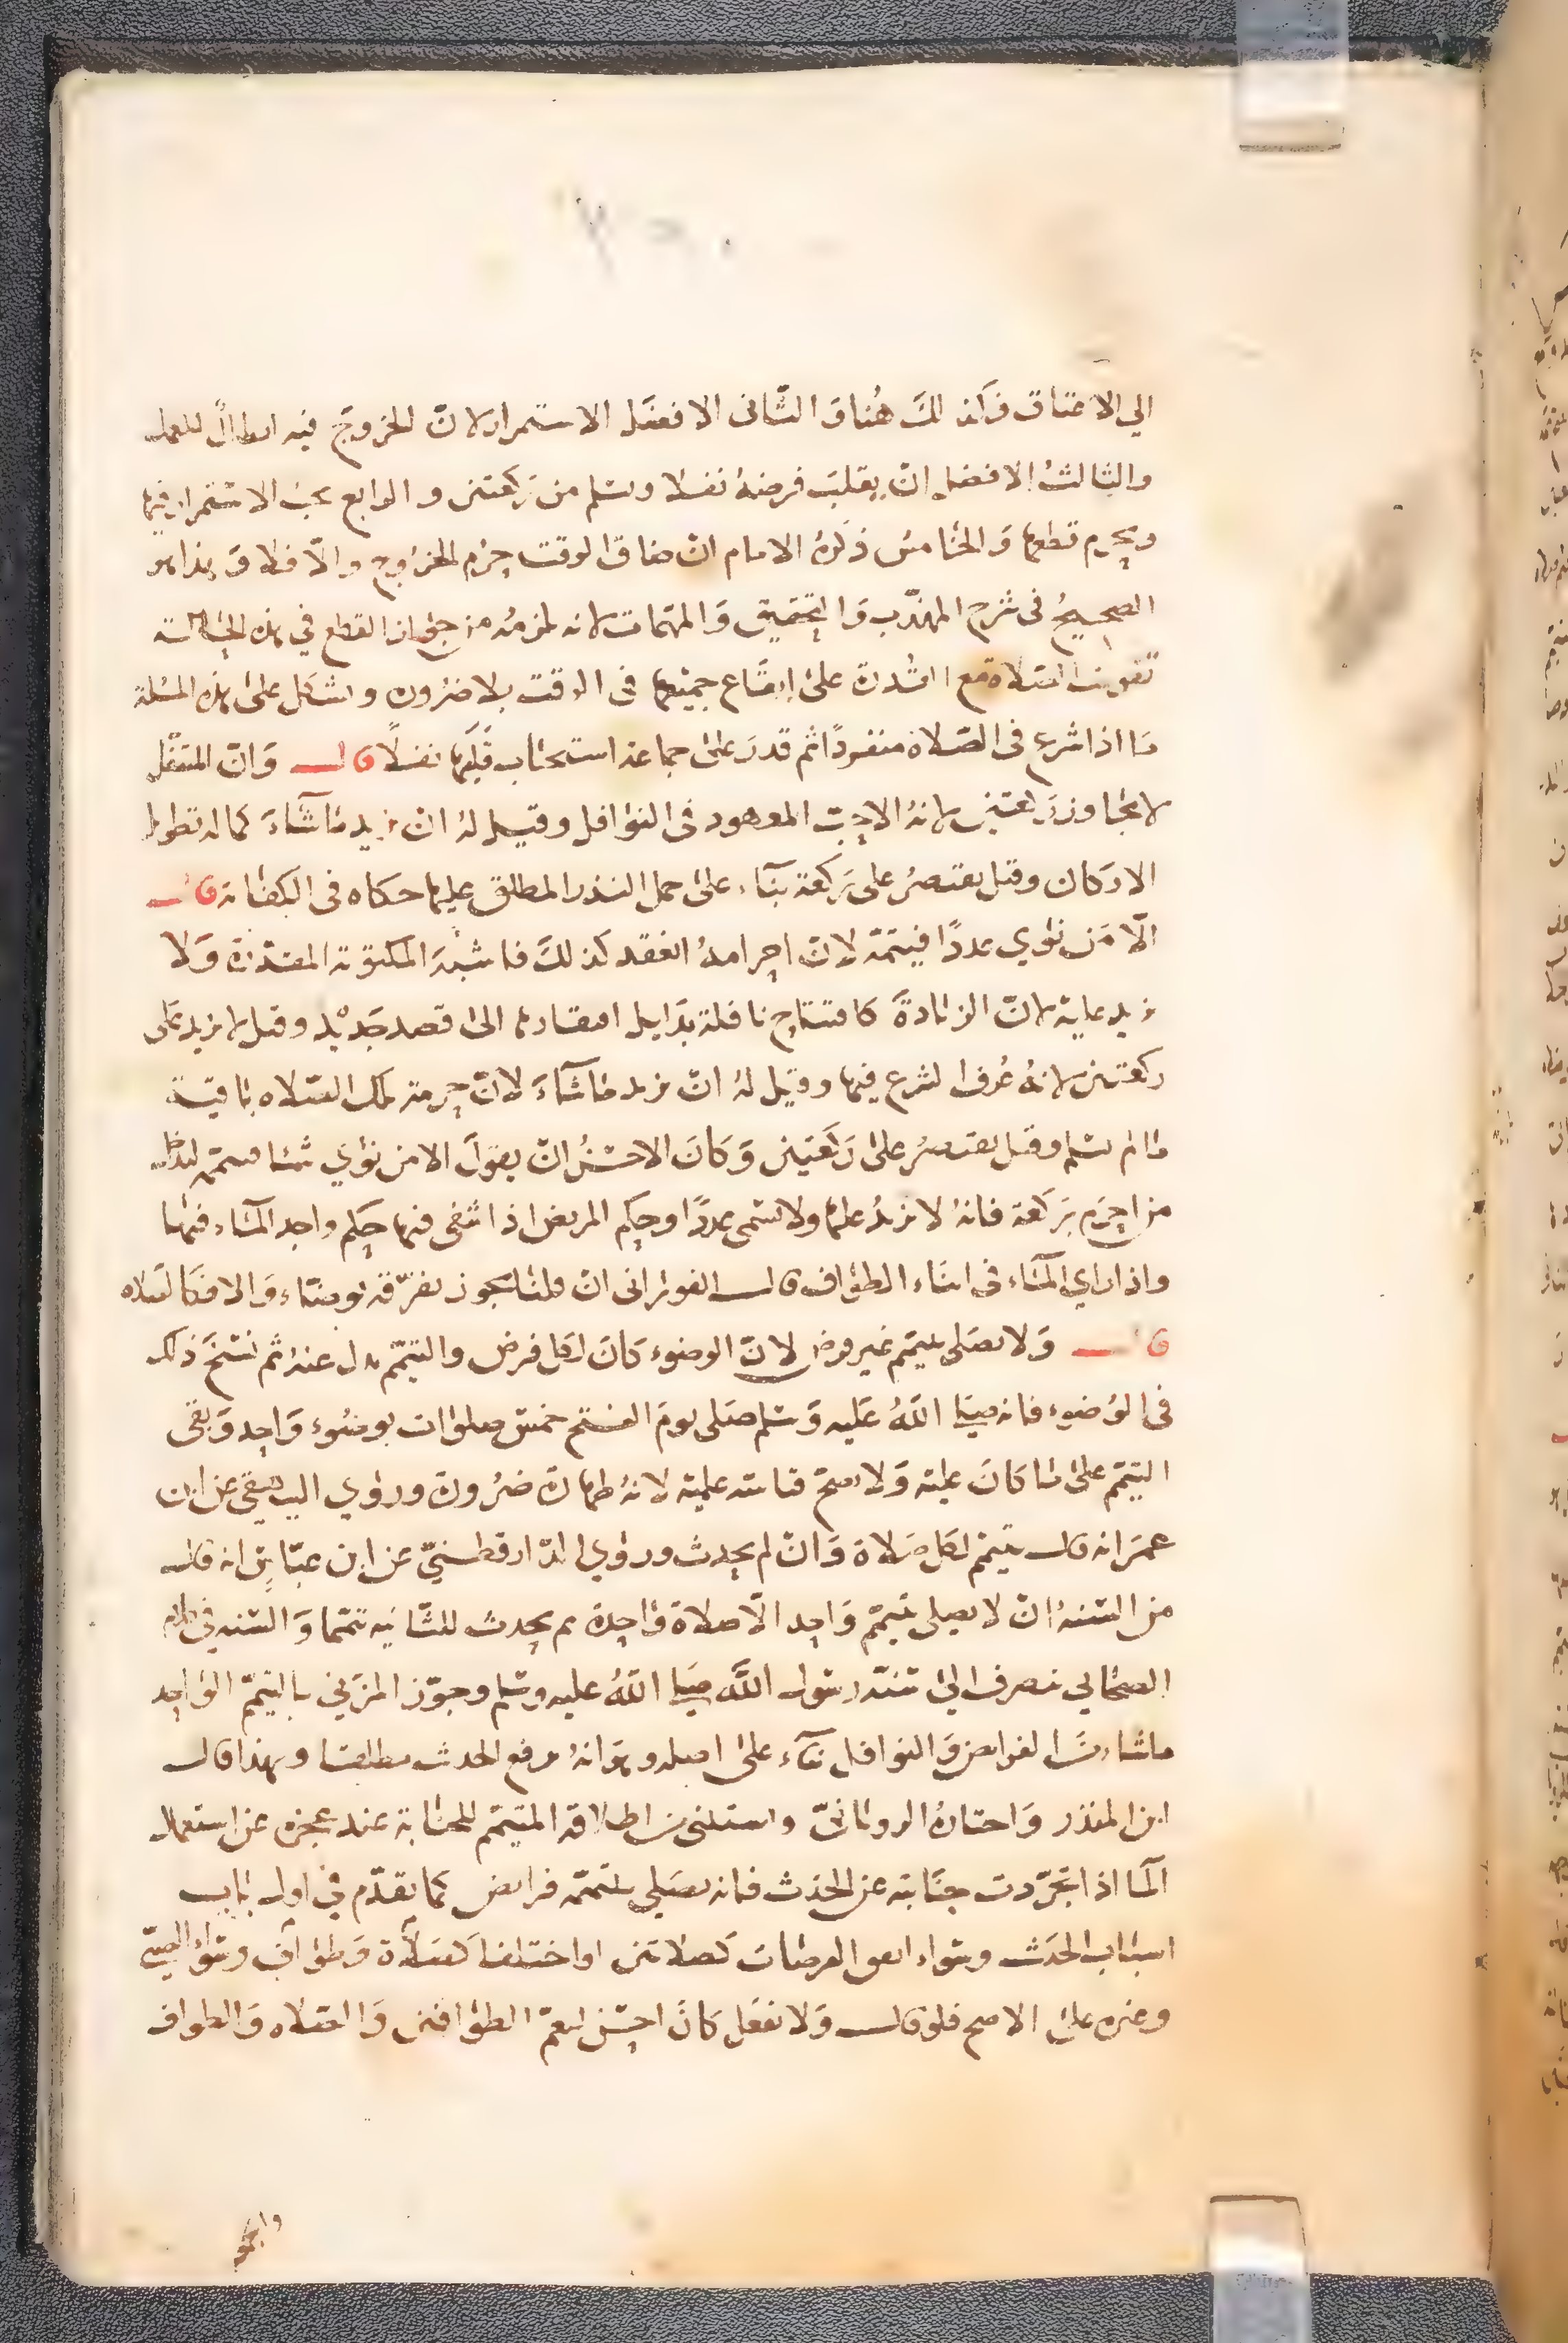 الي الاعتاق فكذلك هُنا وَ الثاني الافضَل الاستمرار لانّ الخروجَ فيه ابطالٌ للعمل
والثالثُ الافضل انْ يقلبَ فرضهُ نفلا ويسلم من ركعتين و الرابع يجبُ الاستمرار فيها
ويحرم قطعها وَ الخامسُ ذكرهُ الامام انْ ضاق الوقت حرُم الخروج والّا فلا وَ هذا هو
الصحيحُ في شرح المهذّب وَ التحقيق وَ المهّمات لانه يلزمُه من جواز القطع في هذه الحالة
تفويتُ الصّلاة مع القُدرة على ايقَاع جميعها في الوقت بلا ضرُورة ويشكل على هذه المسئلة
مَا اذا شرع في الصّلاة منفردًا ثم قدرَ على جماعة استحباب قلبها نفلًا قال وَانّ المتنفّل
لا يجاوز ركعتين لانهُ الاحبّ المعهود في النوافل وقيل لهُ انْ يزيد ماشآءَ كما له تطويل
الاركان وقيل يقتصرُ على ركعة بنآء على حمل النذر المطلق عليها حكاه في الكفاية قال
الّا مَن نوي عددًا فيتمّهُ لانّ احرامهُ انعقد كذلكَ فاشبهَ المكتوبة المقدّرَة وَلا
يزيد عليه لانّ الزيادةَ كافتتاح نافلة بدليل افتقارها الى قصد جَديْد وقيل لا يزيد على
ركعتين لانهُ عُرف الشرع فيها وقيل لهُ انْ يزيد ماشآءَ لانّ حرمة تلك الصّلاه باقية
ما لم يسلم وقيل يقتصرُ على ركعَتين وَكانَ الاحسنُ انْ يقولَ الا من نوي شيئا فيتمه ليدخل
من احرَم بركعة فانهُ لا يزيدُ عليها ولا تسمى عددًا وحكم المريض اذا شفي فيها حكم واجد المآء فيها
واذا راي المآء في اثنَاء الطواف قال الفوراني انْ قلنا يجوز تفرّقه توضّاء وَ الا فكالصّلاه
قال وَلا يصَلي بتيمّم غير فرض لانّ الوضوء كانَ لكل فرض والتيمّم بدل عنهُ ثم نسخَ ذلك
في الوُضوء فانه صلى اللهُ عَليه وَسلم صَلى يومَ الفتح خمسَ صلوات بوضُوء وَاحد وَبقي
التيمّم على مَا كانَ عليْه وَلا يصحّ قياسه عليْه لانهُ طهارة ضرُورة وروي البيهقي عن ابن
عمَر انه قال يتيمّم لكل صَلاة وَانْ لم يحدث وروي الدّارقطنيّ عن ابن عبّاسٍ انه قال
من السّنهُ انْ لا يصلي بتيمّم وَاحد الّا صلاة وَاحدة ثم يحدث للثّانيه تيمّما وَ السّنه في كلام
الصحابي ينصرف الى سُنّة رسول اللَّه صَلى اللهُ عليه وسلم وجوّز المزني بالتيمّم الواحد
ماشاء من الفرائض وَ النوافل بنآء على اصله وهوَ انهُ يرفع الحدث مطلقا وبهذا قال
ابن المنذر وَ اختارهُ الرويانيّ ويستثنى من اطلاقه المتيمّم للجنابة عند عجزه عن استعمال
المآ اذا تجرّدت جنَابته عن الحدث فانه يصَلي بتيمّمه فرايض كما تقدّم في اول باب
اسباب الحدَث وسواء اتفق الفرضان كصلاتين او اختلفا كصَلاة وَطواف وسواء الصبيّ
وغيره على الاصح فلو قال وَلا يفعَل كانَ احسَن ليعمّ الطوافين وَ الصّلاه وَ الطواف